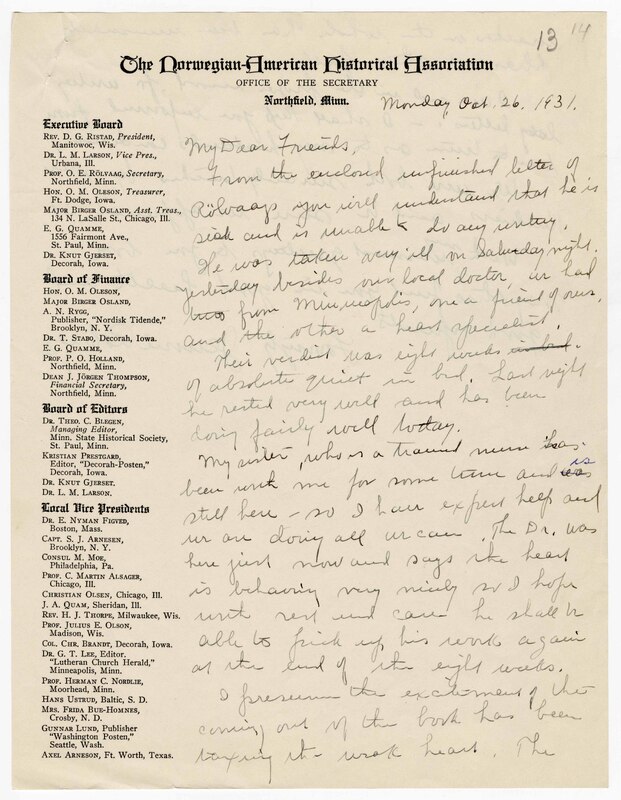 13 14
The Norwegian-American Historical Association
OFFICE OF THE SECRETARY
Northfield, Minn.
Monday Oct. 26, 1931.
Executive Board
REV. D. G. RISTAD, President,
Manitowoc, Wis.
DR. L. M. LARSON, Vice Pres.,
Urbana, Ill.
PROF. O. E. RÖLVAAG, Secretary,
Northfield, Minn.
HON. O. M. OLESON, Treasurer,
Ft. Dodge, Iowa.
MAJOR BIRGER OSLAND, Asst. Treas.,
134 N. LaSalle St., Chicago, Ill.
E. G. QUAMME,
1556 Fairmont Ave.,
St. Paul, Minn.
DR. KNUT GJERSET,
Decorah, Iowa.
Board of Finance
HON. O. M. OLESON,
MAJOR BIRGER OSLAND,
A. N. RYGG,
Publisher, "Nordisk Tidende,"
Brooklyn, N. Y.
DR. T. STABO, Decorah, Iowa.
E. G. QUAMME,
PROF. P. O. HOLLAND,
Northfield, Minn.
DEAN J. JÖRGEN THOMPSON,
Financial Secretary,
Northfield, Minn.
Board of Editors
DR. THEO. C. BLEGEN,
Managing Editor,
Minn. State Historical Society,
St. Paul, Minn.
KRISTIAN PRESTGARD,
Editor, "Decorah-Posten,"
Decorah, Iowa.
DR. KNUT GJERSET.
DR. L. M. LARSON.
Local Vice Presidents
DR. E. NYMAN FIGVED,
Boston, Mass.
CAPT. S. J. ARNESEN,
Brooklyn, N. Y.
CONSUL M. MOE,
Philadelphia, Pa.
PROF. C. MARTIN ALSAGER,
Chicago, Ill.
CHRISTIAN OLSEN, Chicago, Ill.
J. A. QUAM, Sheridan, Ill.
REV. H. J. THORPE, Milwaukee, Wis.
PROF. JULIUS E. OLSON,
Madison, Wis.
COL. CHR. BRANDT, Decorah, Iowa.
DR. G. T. LEE, Editor.
"Lutheran Church Herald,"
Minneapolis, Minn.
PROF. HERMAN C. NORDLIE,
Moorhead, Minn.
HANS USTRUD, Baltic, S. D.
MRS. FRIDA BUE-HOMNES,
Crosby, N. D.
GUNNAR LUND, Publisher
"Washington Posten,"
Seattle, Wash.
AXEL ARNESON, Ft. Worth, Texas.
My Dear Friends,
From the enclosed unfinished letter of
Rölvaags you will understand that he is
sick and is unable to do any writing.
He was taken very ill on Saturday night.
yesterday besides our local doctor we had
two from Minneapolis, one a friend of ours,
and the other a heart specialist.
Their verdict was eight weeks in bed.
of absolute quiet in bed. Last night
he rested very well and has been
doing fairly well today.
My sister, who is a trained nurse has
been with me for some time and is
still here - so I have expert help and
we are doing all we can. The Dr. was
here just now and says the heart
is behaving very nicely so I hope
with rest and care he shall be
able to pick up his work again
at the end of the eight weeks.
I presume the excitement of the
coming out of the book has been
taxing the weak heart. The